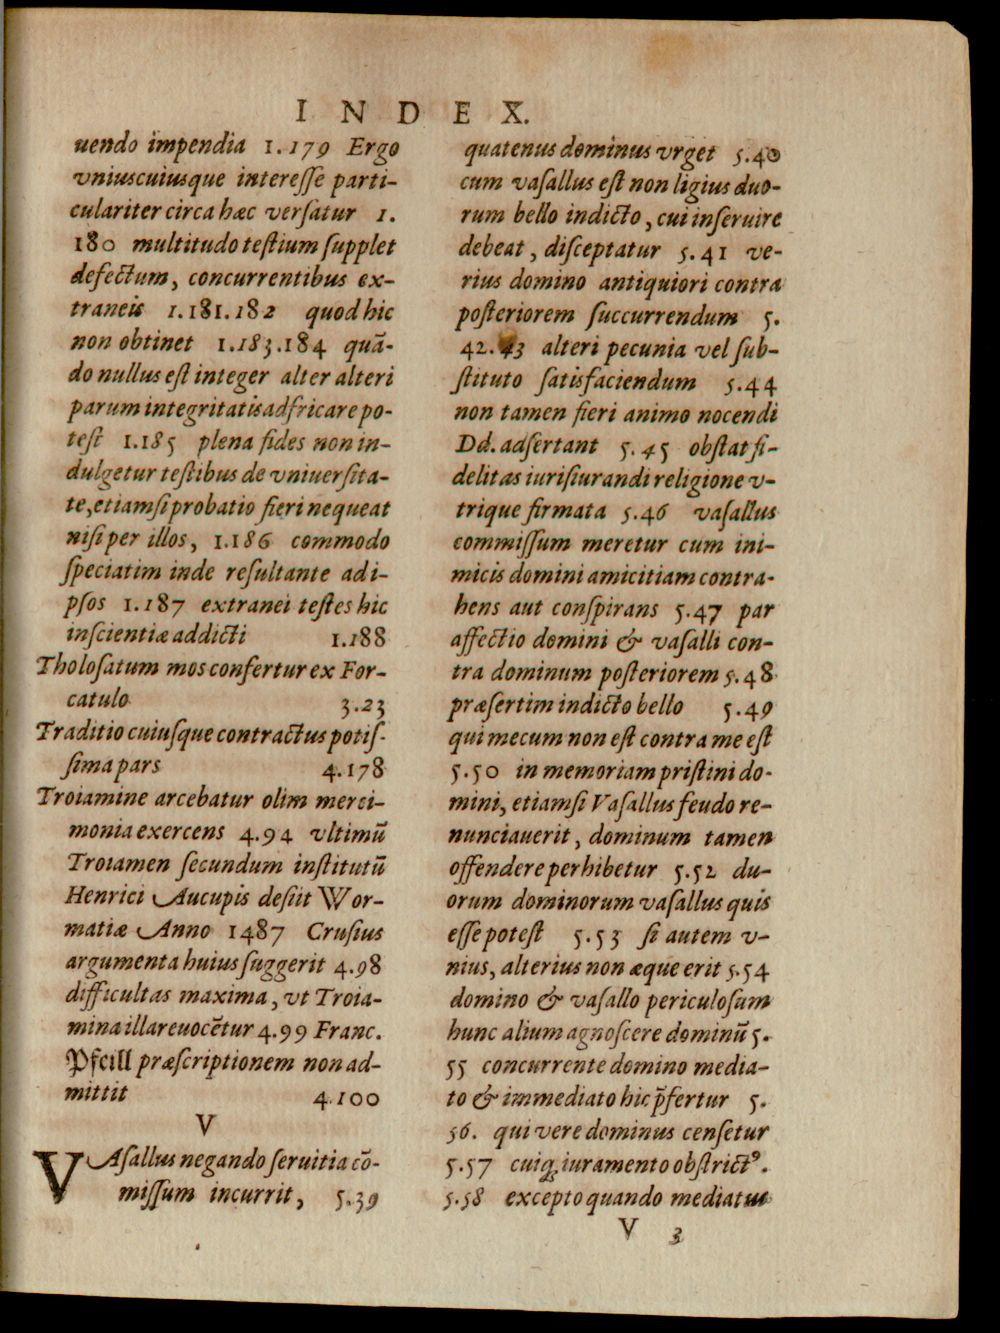 INDEX.
uendo impendia 1.179 Ergo
vniuscuiusque interesse parti-
culariter circa hæc versatur 1.
180 multitudo testium supplet
defectum, concurrentibus ex-
traneis 1.181.182 quod hic
non obtinet 1.183.184 quā-
do nullus est integer alter alteri
parum integritatis adfricare po-
test 1.185 plena fides non in-
dulgetur testibus de vniuersita-
te, etiamsi probatio fieri nequeat
nisi per illos, 1.186 commodo
speciatim inde resultante ad i-
psos 1.187 extranei testes hic
inscientiæ addicti 1.188
Tholosatum mos confertur ex For-
catulo 3.23
Traditio cuiusque contractus potis-
sima pars 4.178
Troiamine arcebatur olim merci-
monia exercens 4.94 vltimū
Troiamen secundum institutū
Henrici Aucupis desiit Wor-
matiæ Anno 1487 Crusius
argumenta huius suggerit 4.98
difficultas maxima, vt Troia-
mina illa reuocētur 4.99 Franc.
Pfeill præscriptionem non ad-
mittit 4.100
V
VAsallus negando seruitia cō-
missum incurrit, 5.39
quatenus dominus vrget 5.40
cum vasallus est non ligius duo-
rum bello indicto, cui inseruire
debeat, disceptatur 5.41 ve-
rius domino antiquiori contra
posteriorem succurrendum 5.
42.43 alteri pecunia vel sub-
stituto satisfaciendum 5.44
non tamen fieri animo nocendi
Dd. adsertant 5.45 obstat fi-
delitas iurisiurandi religione v-
trique firmata 5.46 vasallus
commissum meretur cum ini-
micis domini amicitiam contra-
hens aut conspirans 5.47 par
affectio domini & vasalli con-
tra dominum posteriorem 5.48
præsertim indicto bello 5.49
qui mecum non est contra me est
5.50 in memoriam pristini do-
mini, etiamsi Vasallus feudo re-
nunciauerit, dominum tamen
offendere perhibetur 5.52 du-
orum dominorum vasallus quis
esse potest 5.53 si autem v-
nius, alterius non æque erit 5.54
domino & vasallo periculosum
hunc alium agnoscere dominū 5.
55 concurrente domino media-
to & immediato hic p̄fertur 5.
56. qui vere dominus censetur
5.57 cuiq; iuramento obstrictꝰ.
5.58 excepto quando mediatus
V 3